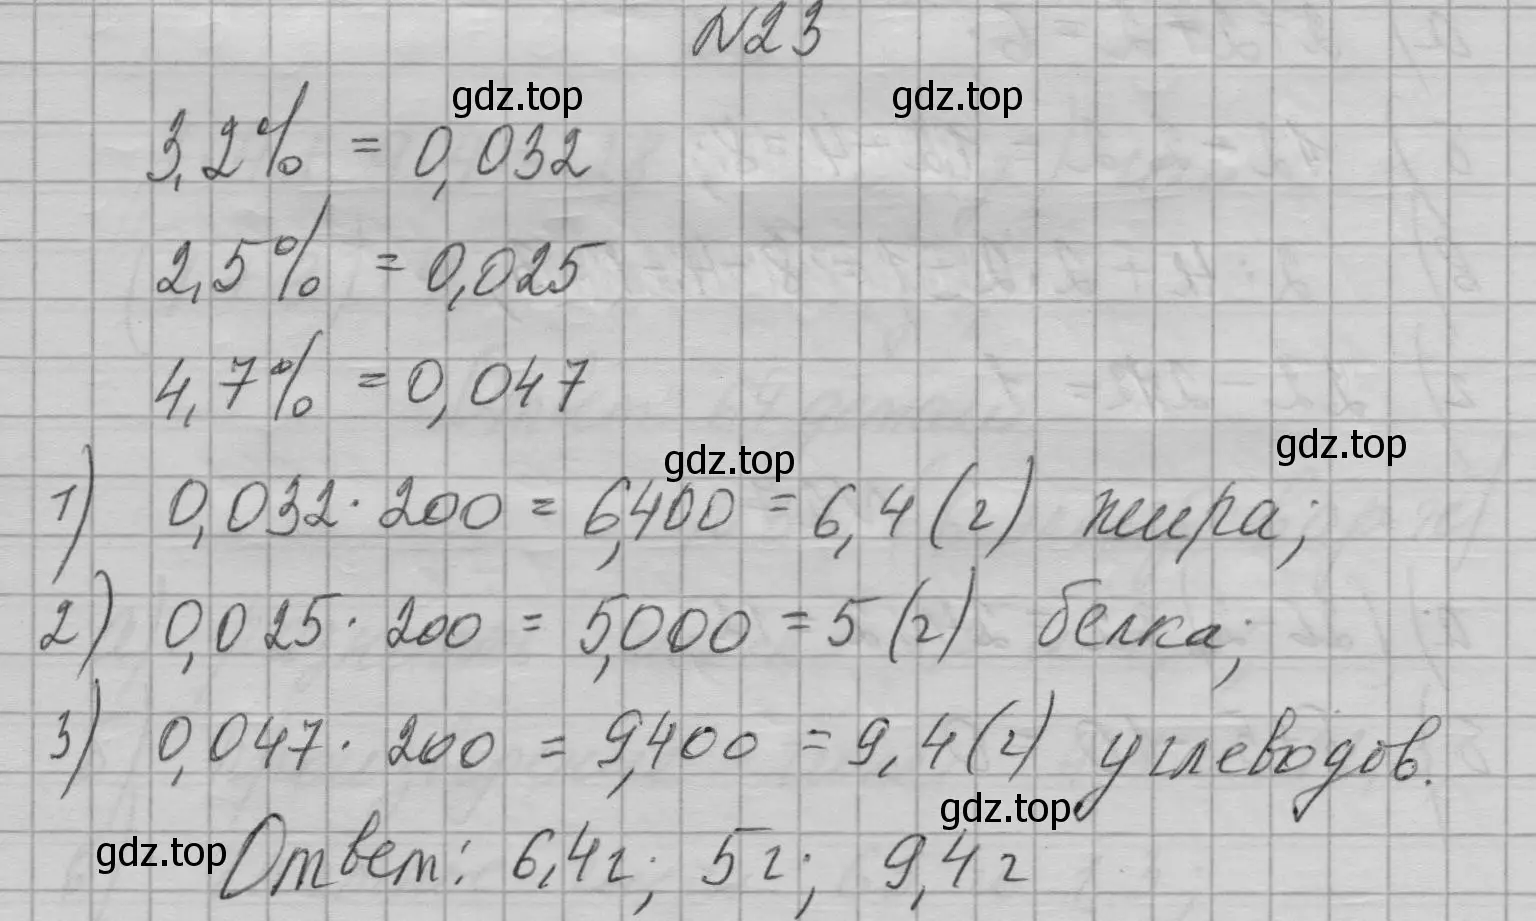 N23
gdz.top gdz.top
3,2% = 0,032
2,5% = 0,025
4,7% = 0,047
gdz.top gdz.top
1) 0,032 · 200 = 6,400 = 6,4 (г) жира;
2) 0,025 · 200 = 5,000 = 5 (г) белка;
3) 0,047 · 200 = 9,400 = 9,4 (г) углеводов.
gdz.top gdz.top
Ответ: 6,4г; 5г; 9,4г